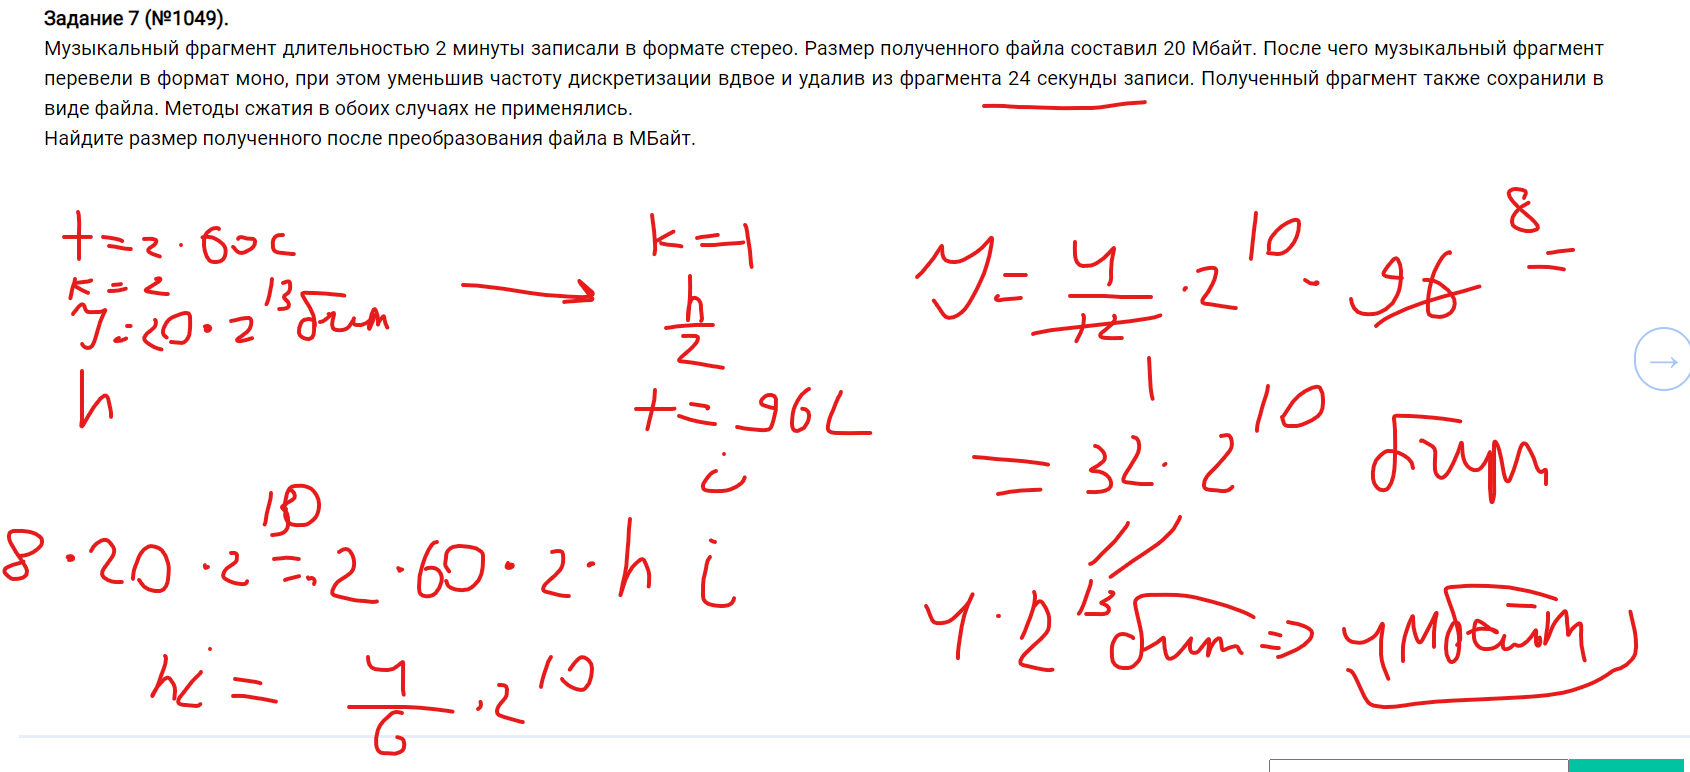 Задание 7 (№1049).
Музыкальный фрагмент длительностью 2 минуты записали в формате стерео. Размер полученного файла составил 20 Мбайт. После чего музыкальный фрагмент
перевели в формат моно, при этом уменьшив частоту дискретизации вдвое и удалив из фрагмента 24 секунды записи. Полученный фрагмент также сохранили в
виде файла. Методы сжатия в обоих случаях не применялись.
Найдите размер полученного после преобразования файла в МБайт.
t = 2 · 60 с
k = 2
J = 20 · 2^13 бит
h
→
k = 1
h/2
t = 96 с
i
8 · 20 · 2^10 = 2 · 60 · 2 · h i
hi = 4/6 · 2^10
J = 4/12 · 2^10 · 96 8 =
1
= 32 · 2^10 бит
4 · 2^13 бит => 4 Мбайт
→